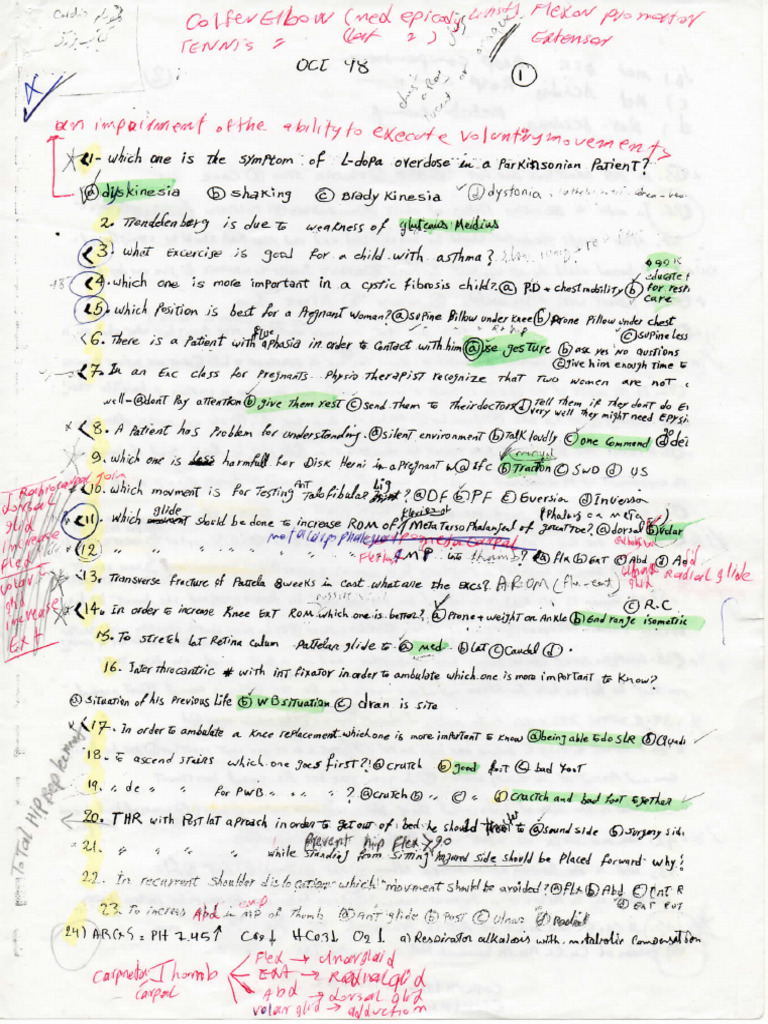 Golfer Elbow (med epicondy) Flexor pronator
TENNIS " (lat " ) Extensor
OCT 98
1
an impairment of the ability to execute voluntary movements
1- which one is the symptom of L-dopa overdose in a Parkinsonian Patient?
a dyskinesia b shaking c Bradykinesia d dystonia
2. Trenddenberg is due to weakness of gluteus Meidius
3. what Excercise is good for a child with asthma?
4. which one is more important in a cystic fibrosis child? a PD + chest mobility b educate f
for resp
care
5. which Position is best for a Pregnant woman? a supine Pillow under knee b prone Pillow under chest
c supine less
6. There is a Patient with aphasia in order to contact with him a use gesture b ask yes no qustions
c give him enough time to
7. In an Exc class for pregnants. Physio Therapist recognize that two women are not
well- a dont Pay attention b give them rest c send them to their doctors d Tell them if they dont do Ex
very well they might need Epysi
8. A Patient has Problem for understanding. a silent environment b Talk loudly c one Command d
9. which one is harmfull for Disk Herni in a Pregnant w a Ifc b Traction c SWD d US
10. which movment is for Testing Ant Talofibular lig ? a DF b PF c Eversia d Inversion
(Phalanx on meta)
11. Which glide should be done to increase ROM of flexion of Metatarso Phalanjeal of great toe? a dorsal b volar
12 " " " " " " Flexion MP into thumb? a flx b Ext c Abd d Add
ulnar glid Radial glide
13. Transverse fracture of Patela 8 weeks in cast what are the excs? AROM (flx-ext)
c R.C
14. In order to increase knee Ext ROM which one is better? a Prone + weight on Ankle b End range isometric
15. To stretch Lat Retina culum Patelan glide to a med b Lat c Caudal d .
16. Inter throcantric # with int fixator in order to ambulate which one is more important to know?
a situation of his previous life b WB situation c dran is site
17. In order to ambulate a knee replacement which one is more important to know a being able to do SLR b Quadi
18. to ascend stairs which one goes first? a crutch b good foot c bad foot
19. " de " " for PWB " " " " ? a crutch b " c " d Cractch and bad foot together
20. THR with Post lat aproach in order to get out of bed he should a sound side b surgery side
Prevent hip flex > 90
21. " " " " " while standing from sitting Injured side should be placed forward why?
22. In recurrent shoulder dislocation which movement should be avoided? a flx b Abd c Int R
d Ext rot
23. To increas Abd in MP of thomb a Ant glide b Post c Ulnar d Radial
24) ABGS = PH 7.45↑ Co2↓ HCO3↓ O2↓ a) Respirator alkalosis with metabolic Compensation
J Radiocarpal join
dorsal
glid
increase
flex
volar
glid
increase
Ext
Total Hip replacement
Carpmeta J thomb
Carpal
Flex → ulnar glaid
EXT → Radial glid
Abd → dorsal glid
volar glid → adduction